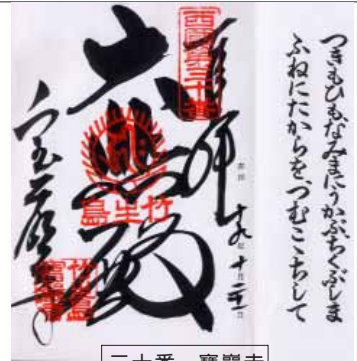 つきもひもなみまにうかぶちくぶしま
ふねにたからをつむここちして
西國第三十番
奉拝
大悲殿
竹生島
三十番 寶嚴寺